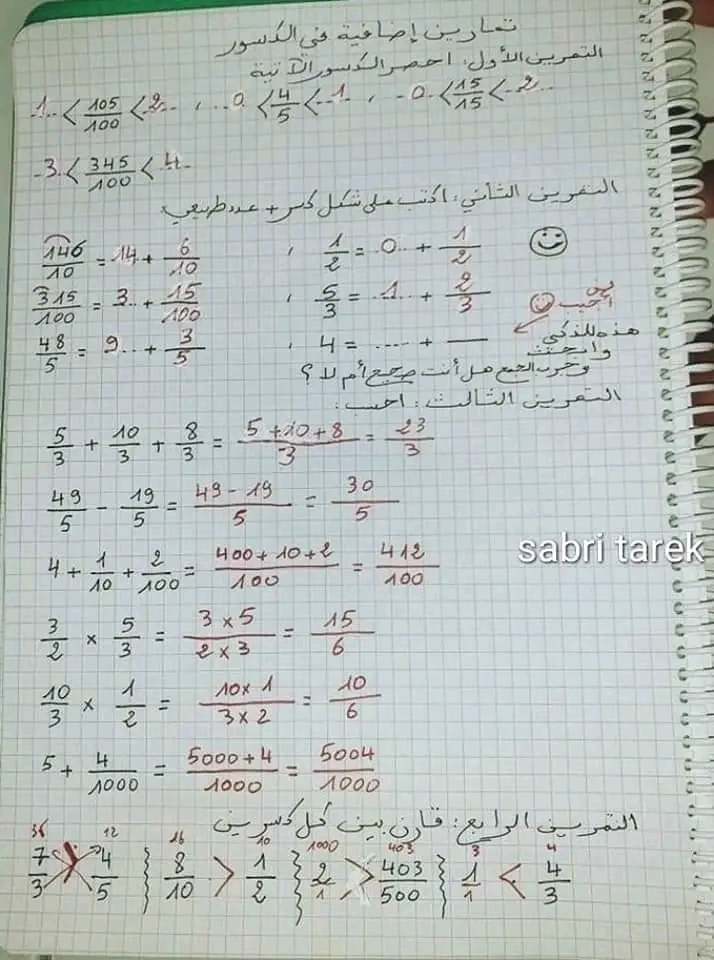 تمارين إضافية في الكسور
التمرين الأول: احصر الكسور الآتية
..1.. < 105/100 < 2... , ...0. < 4/5 < ..1.. , ..0.. < 15/15 < ..2...
..3.. < 345/100 < ..4...
التمرين الثاني: اكتب على شكل كسر + عدد طبيعي:
146/10 = 14 + 6/10 , 1/2 = .0.. + 1/2
315/100 = 3.. + 15/100 , 5/3 = ..1... + 2/3
48/5 = 9... + 3/5 , 4 = ..... + —
هذه للذكي
وجرب الجمع هل أنت صحيح أم لا؟
التمرين الثالث: احسب:
5/3 + 10/3 + 8/3 = 5+10+8/3 = 23/3
49/5 - 19/5 = 49-19/5 = 30/5
sabri tarek
4 + 1/10 + 2/100 = 400+10+2/100 = 412/100
3/2 × 5/3 = 3×5/2×3 = 15/6
10/3 × 1/2 = 10×1/3×2 = 10/6
5 + 4/1000 = 5000+4/1000 = 5004/1000
التمرين الرابع: قارن بين كل كسرين
12 10 1000 403 3 4
7/3 > 4/5 } 8/10 > 1/2 } 2/1 > 403/500 } 1/1 < 4/3